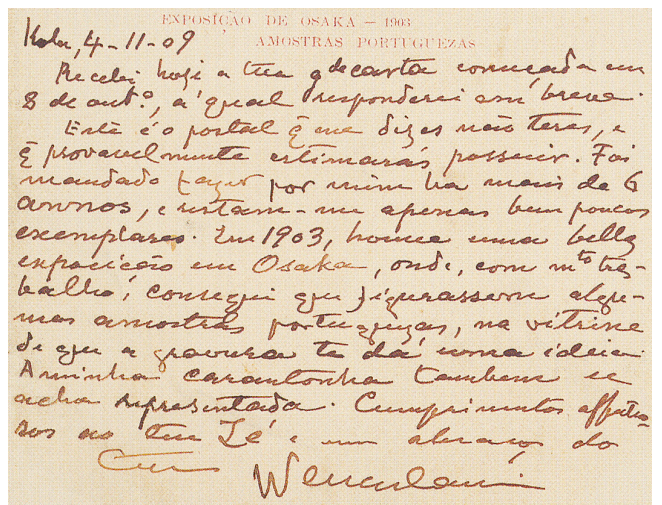 EXPOSIÇÃO DE OSAKA — 1903
AMOSTRAS PORTUGUEZAS
Kobe, 4-11-09
Recebi hoje a tua gde carta começada em
8 de outº, á qual responderei em breve.
Este é o postal q̃ me dizes não teres, e
q̃ provavelmente estimarás possuir. Foi
mandado fazer por mim ha mais de 6
annos, e restam-me apenas bem poucos
exemplares. Em 1903, houve uma bella
exposição em Osaka, onde, com mto tra-
balho, consegui que figurassem algu-
mas amostras portuguezas, na vitrine
de que a gravura te dá uma ideia.
A minha carantonha tambem se
acha representada. Cumprimentos affectuo-
sos ao teu Zé e um abraço do
Teu
Wenceslau